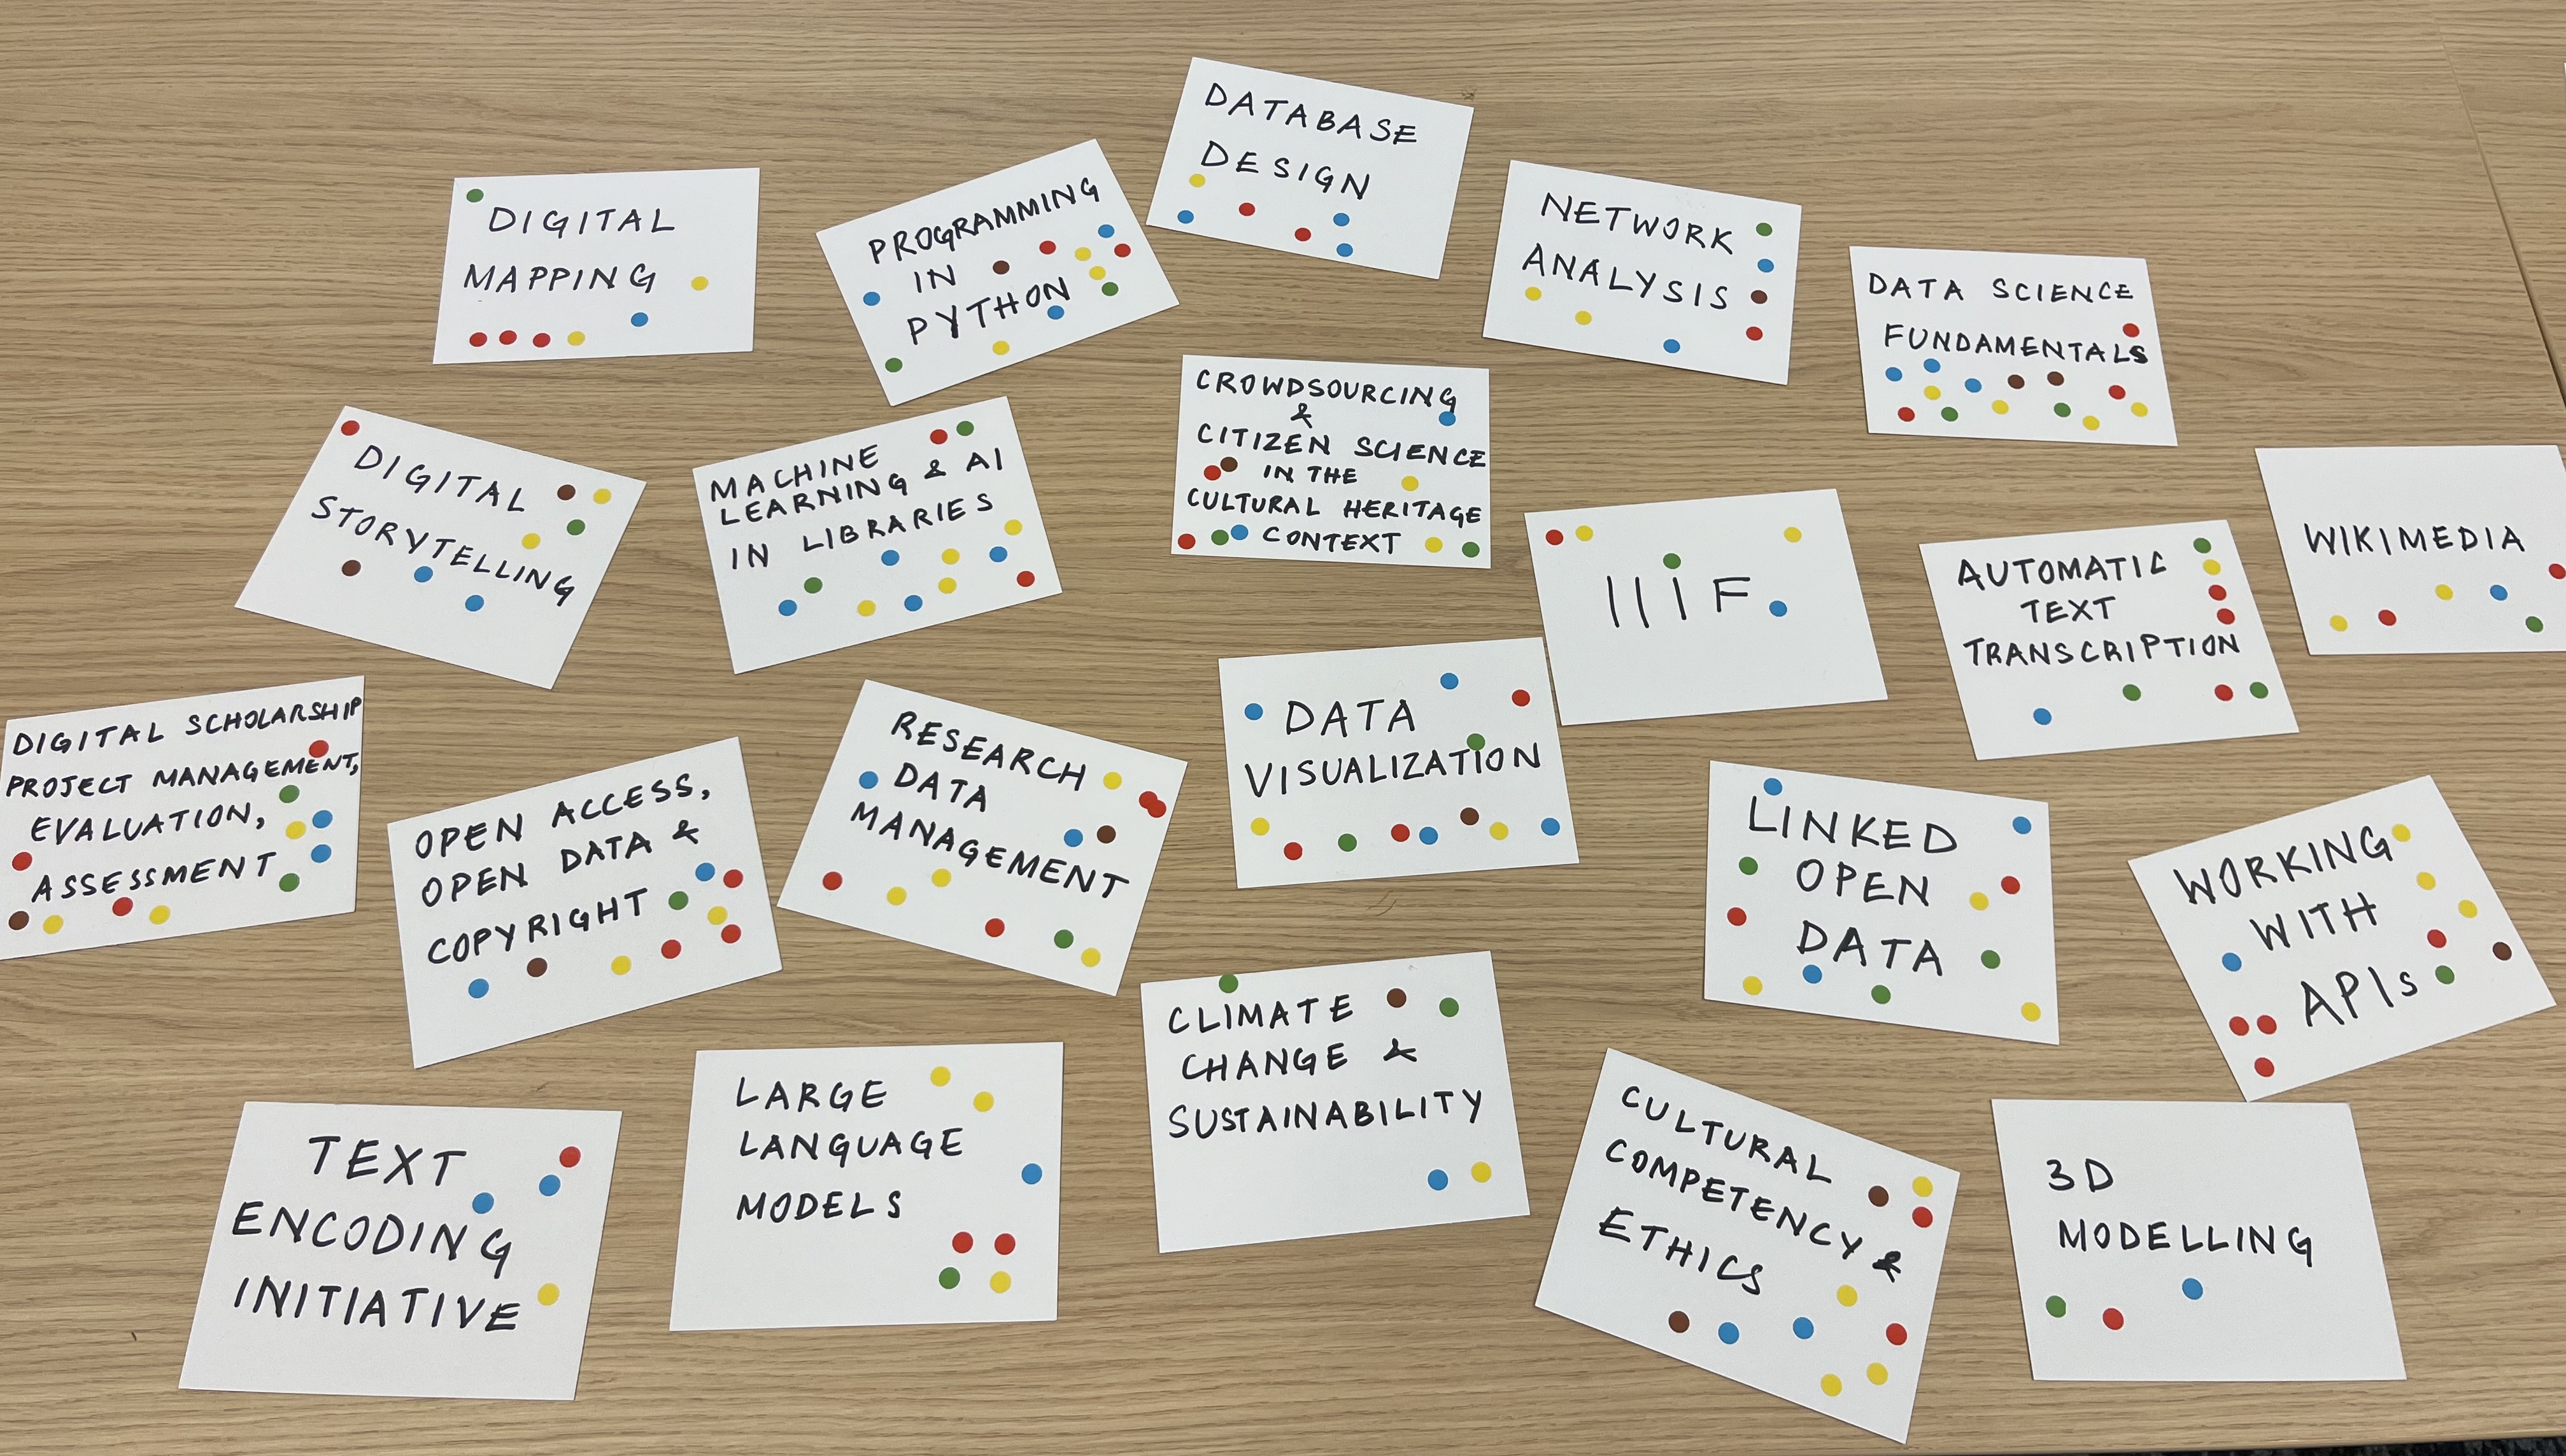 DATABASE
DESIGN
DIGITAL
MAPPING
PROGRAMMING
IN
PYTHON
NETWORK
ANALYSIS
DATA SCIENCE
FUNDAMENTALS
DIGITAL
STORYTELLING
MACHINE
LEARNING & AI
IN LIBRARIES
CROWDSOURCING
&
CITIZEN SCIENCE
IN THE
CULTURAL HERITAGE
CONTEXT
IIIF
AUTOMATIC
TEXT
TRANSCRIPTION
WIKIMEDIA
DIGITAL SCHOLARSHIP
PROJECT MANAGEMENT,
EVALUATION,
ASSESSMENT
OPEN ACCESS,
OPEN DATA &
COPYRIGHT
RESEARCH
DATA
MANAGEMENT
DATA
VISUALIZATION
LINKED
OPEN
DATA
WORKING
WITH
APIs
TEXT
ENCODING
INITIATIVE
LARGE
LANGUAGE
MODELS
CLIMATE
CHANGE &
SUSTAINABILITY
CULTURAL
COMPETENCY &
ETHICS
3D
MODELLING